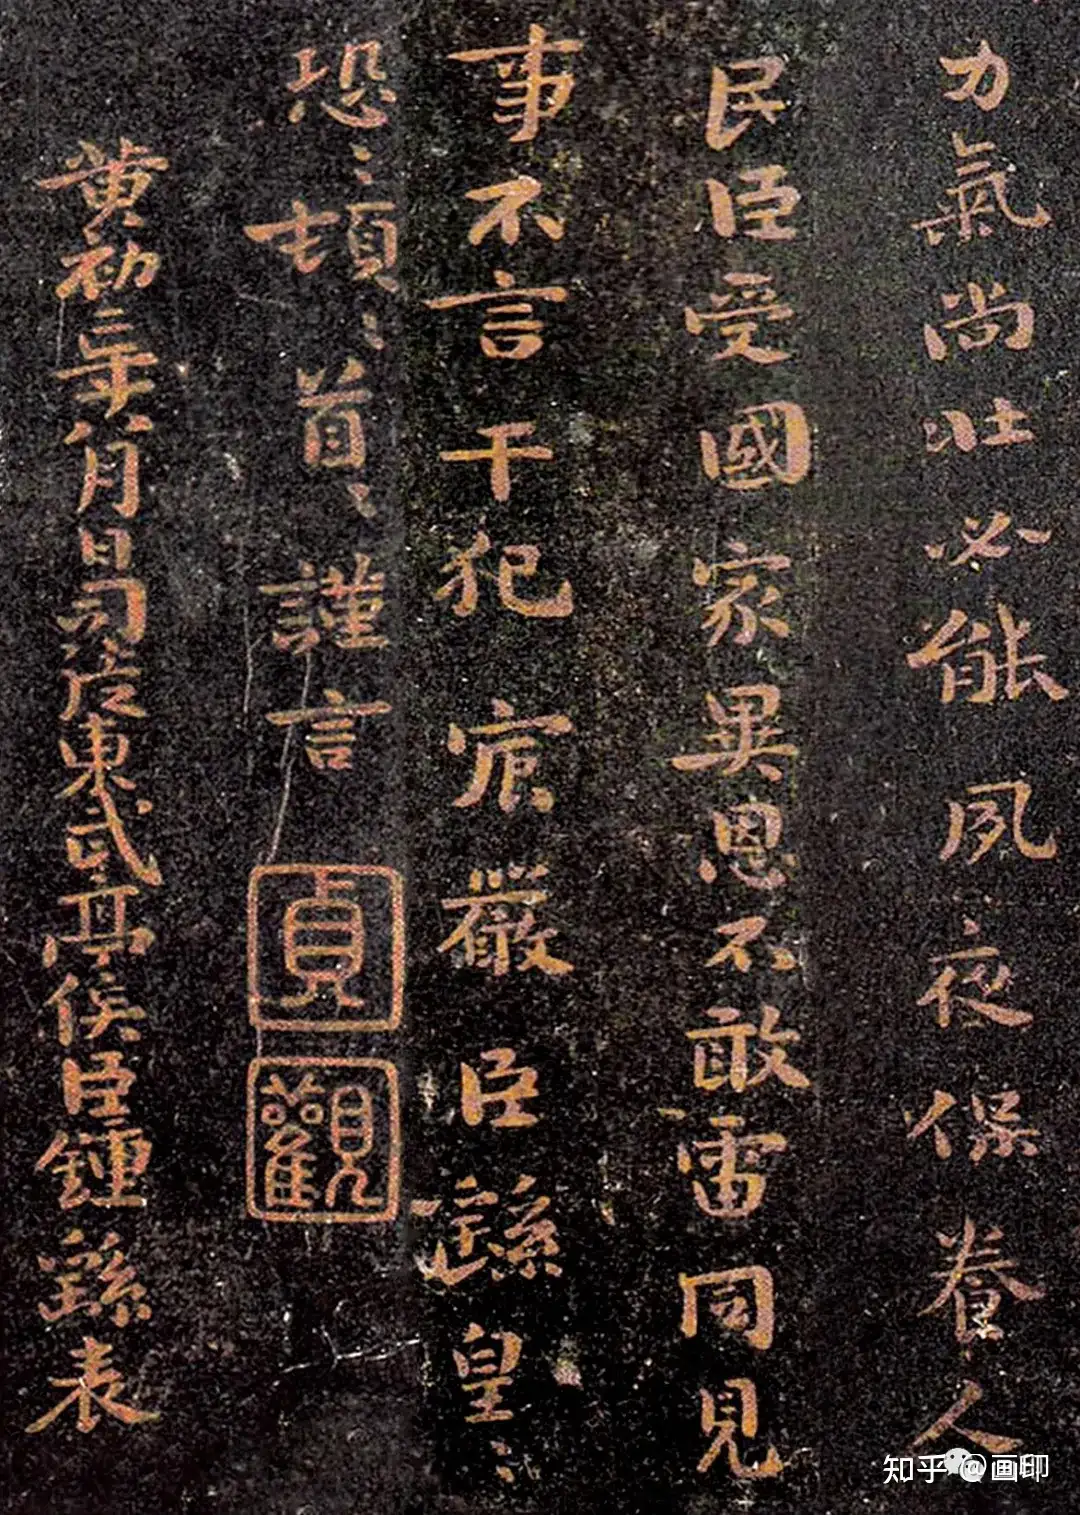 力氣尚壯必能夙夜保養人
民臣受國家異恩不敢雷同見
事不言干犯宸嚴臣繇皇〻
恐〻頓〻首〻謹言
貞觀
黃初二年八月日司徒東武亭侯臣鍾繇表
知乎 @画印